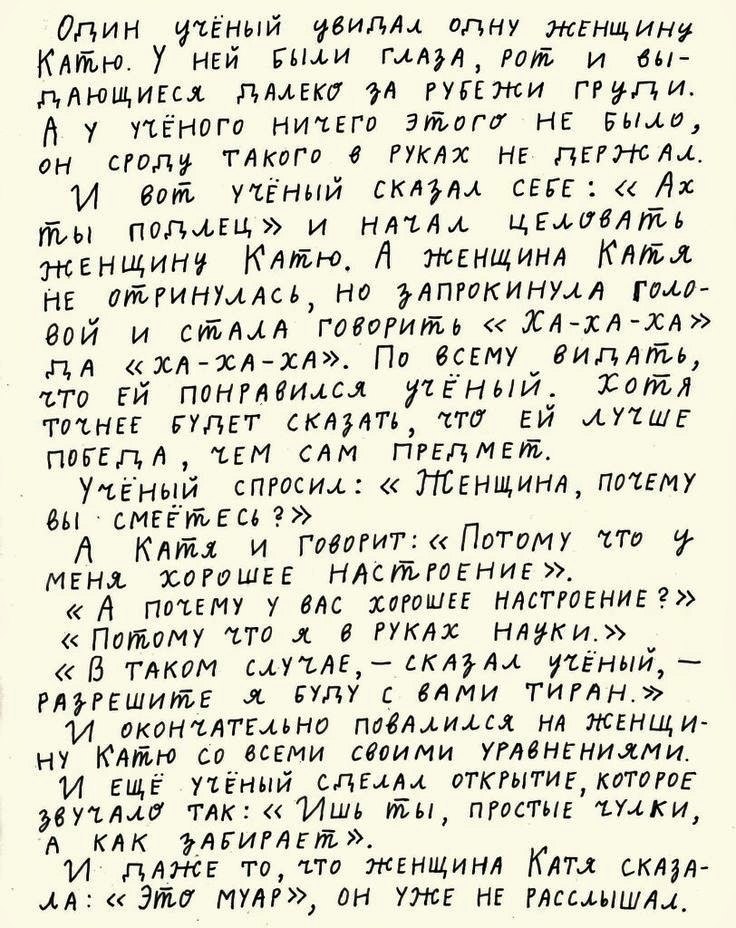 Один учёный увидал одну женщину
Катю. У ней были глаза, рот и вы-
дающиеся далеко за рубежи груди.
А у учёного ничего этого не было,
он сроду такого в руках не держал.
И вот учёный сказал себе: «Ах
ты подлец» и начал целовать
женщину Катю. А женщина Катя
не отринулась, но запрокинула голо-
вой и стала говорить «Ха-ха-ха»
да «ха-ха-ха». По всему видать,
что ей понравился учёный. Хотя
точнее будет сказать, что ей лучше
победа, чем сам предмет.
Учёный спросил: «Женщина, почему
вы смеётесь?»
А Катя и говорит: «Потому что у
меня хорошее настроение».
«А почему у вас хорошее настроение?»
«Потому что я в руках науки.»
«В таком случае, – сказал учёный, –
разрешите я буду с вами тиран.»
И окончательно повалился на женщи-
ну Катю со всеми своими уравнениями.
И ещё учёный сделал открытие, которое
звучало так: «Ишь ты, простые чулки,
а как забирает».
И даже то, что женщина Катя сказа-
ла: «Это муар», он уже не расслышал.